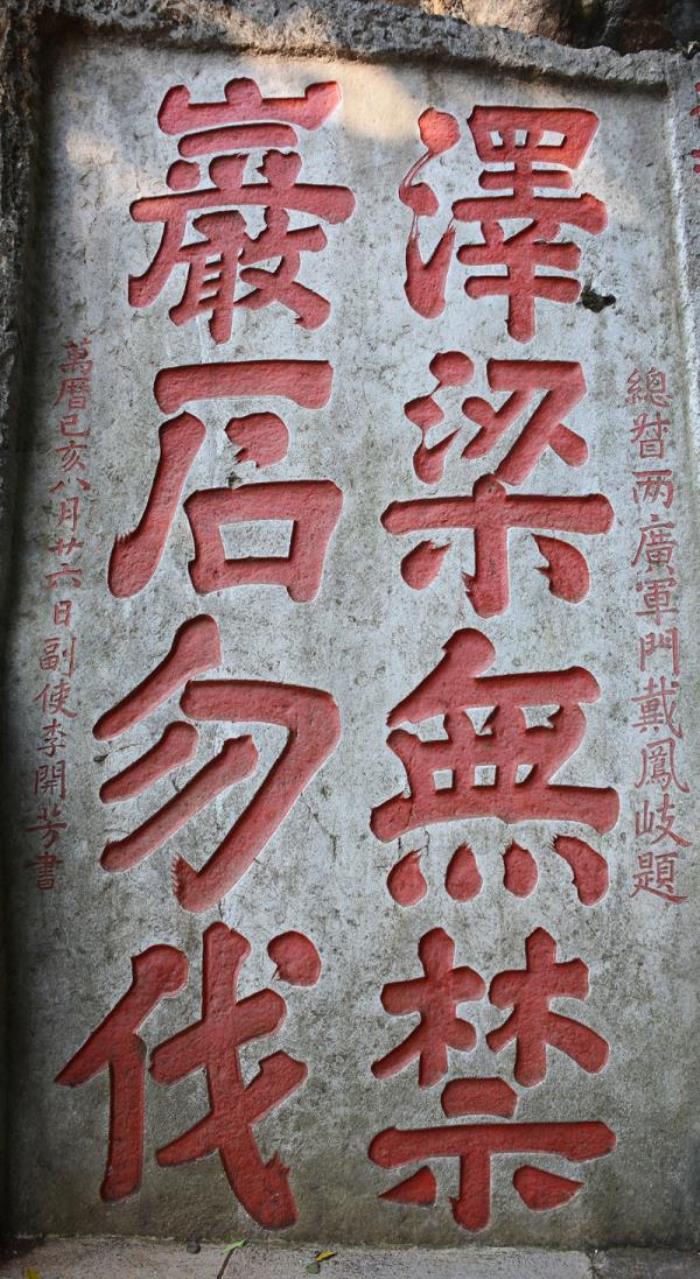 總督两廣軍門戴鳳岐題
澤梁無禁
巖石勿伐
萬曆己亥八月廿六日副使李開芳書